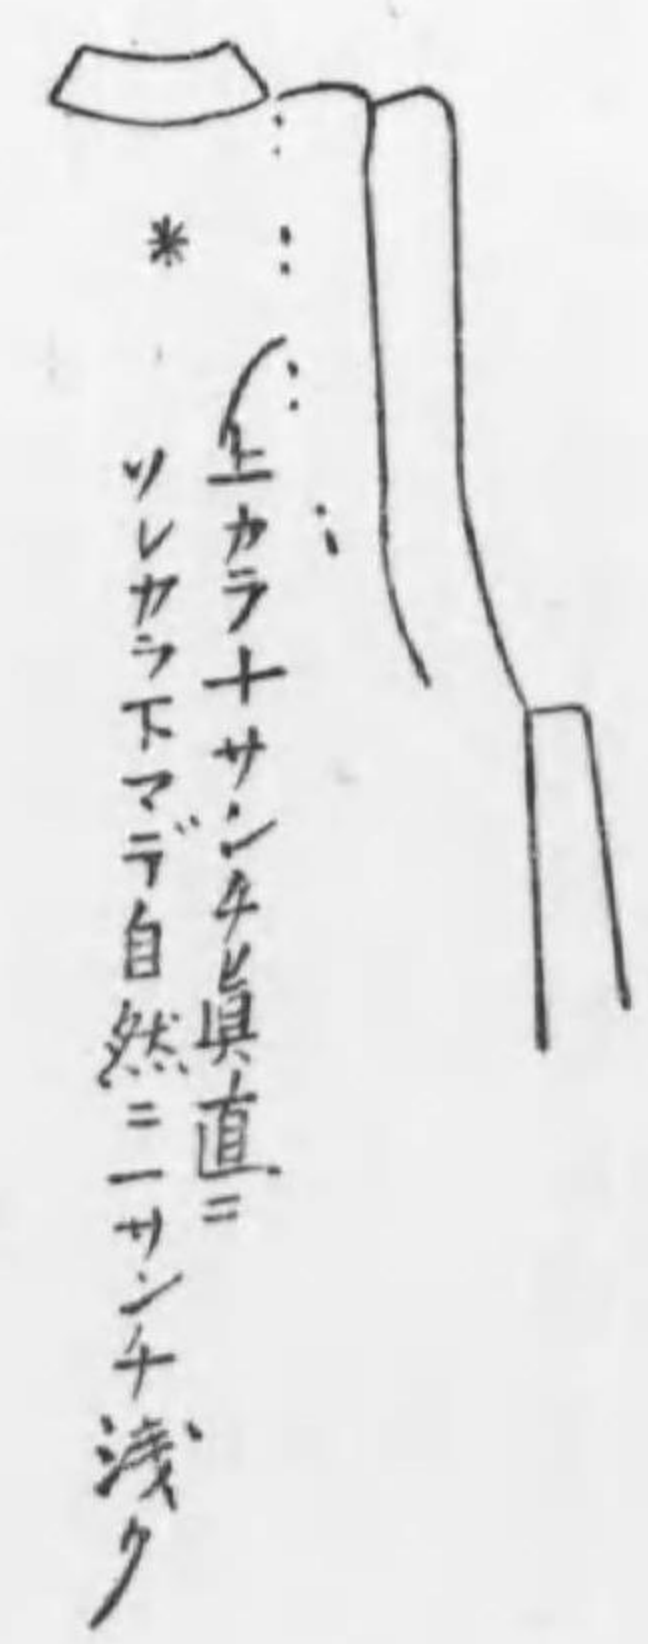 上カラ十サンチ眞直ニ
ソレカラ下マデ自然ニ一サンチ浅ク